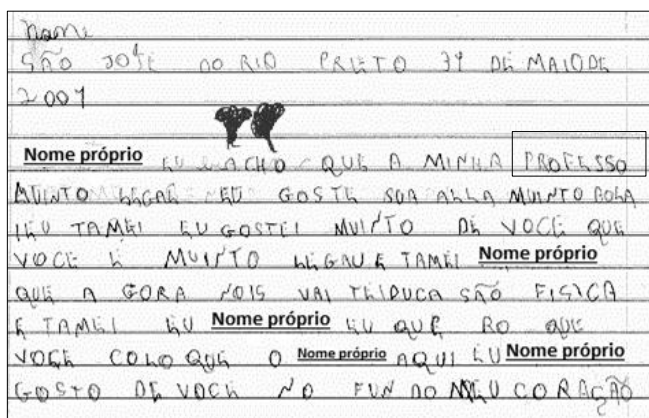 Name
SÃO JOSE DO RIO PRETO 31 DE MAIO DE
2001
Nome próprio EU ACHO QUE A MINHA PROFESSO
MUINTO LEGAL EU GOSTE SUA ALLA MUINTO BOLA
IEU TAMEI EU GOSTEI MUINTO DE VOCE QUE
VOCE E MUINTO LEGAU E TAMEI Nome próprio
QUE A GORA NOIS VAI TEIDUCA SÃO FISICA
E TAMEI EU Nome próprio EU QUE RO QUE
VOCE COLO QUE O Nome próprio AQUI EU Nome próprio
GOSTO DE VOCE NO FUN DO MEU CORAÇÃO